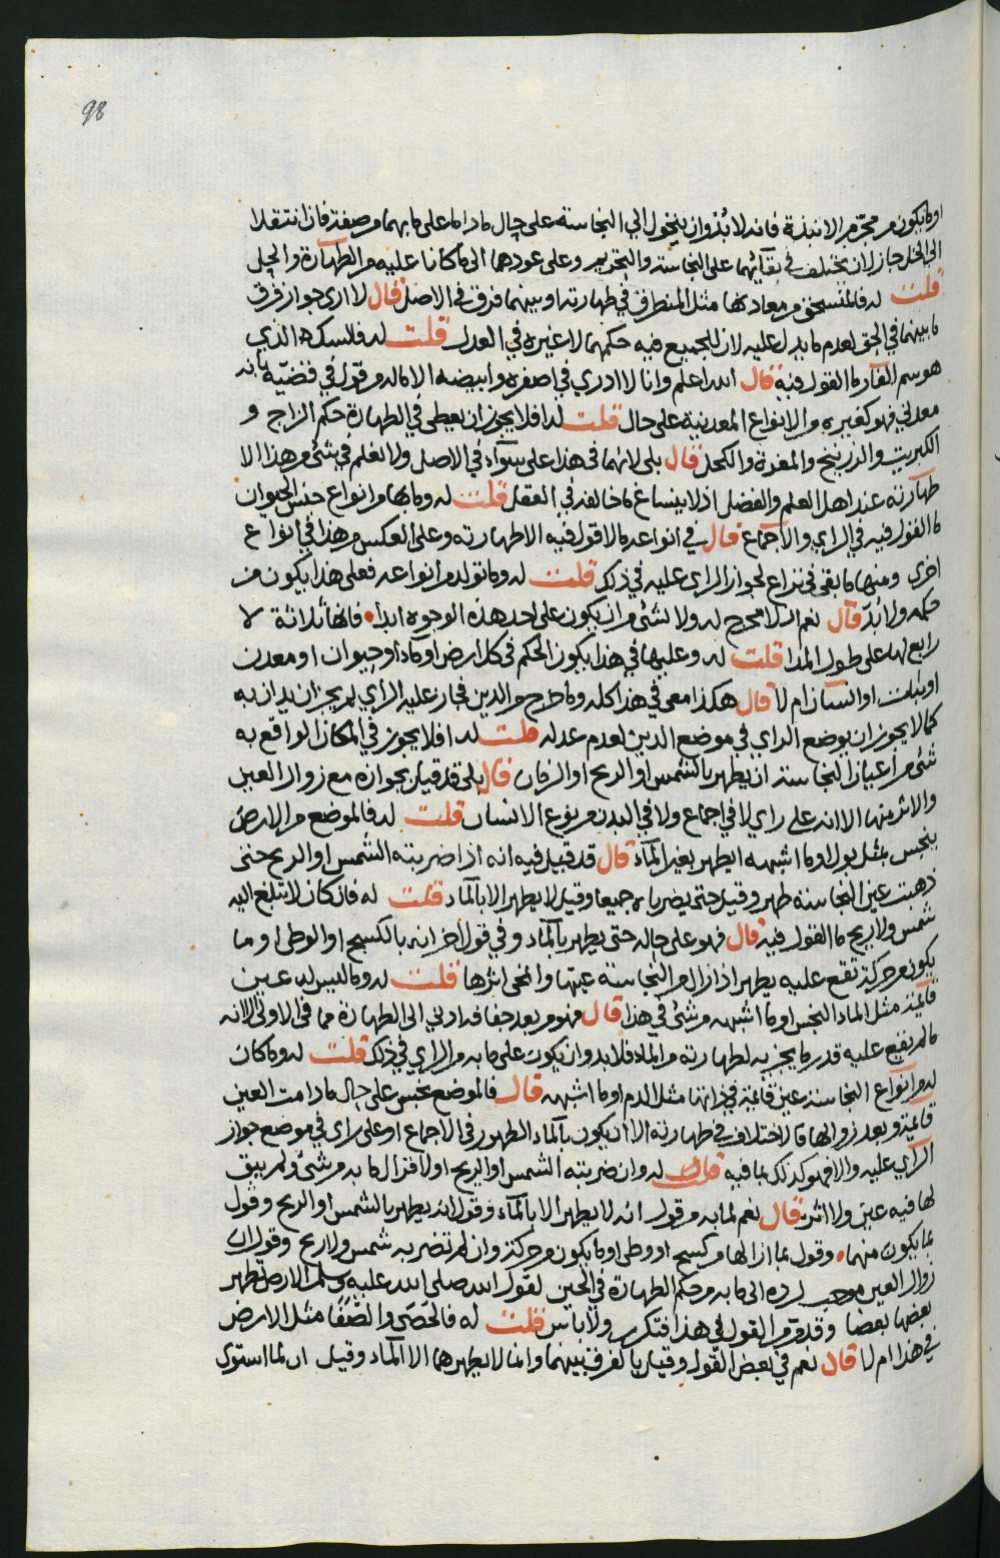 98
او ما يكون من محرم الانبذة فانه لا بد وان يتحول الي النجاسة على حال ما داما على ما بهما من صفة فان انتقلا
الى الخل جاز لان يختلف في بقآئهما على النجاسة والتحريم وعلى عودهما الى ما كانا عليه من الطهارة والحل
قلت له فالمنسحق من معادنها مثل المنطرق في طهارته او بينهما فرق في الاصل قال لا ارى جواز فرق
ما بينهما في الحق لعدم ما يدل عليه لان للجميع فيه حكمهما لا غيره في العدل قلت له فالسك الذي
هو سم الفار ما القول فيه قال الله اعلم وانا لا ادري في اصفره وابيضه الا ماله من قول في قضية بانه
معدني فهو كغيره من الانواع المعدنية على حال قلت له افلا يجوز ان يعطى في الطهارة حكم الزاج و
الكبريت والزرنيخ والمغرة والكحل قال بلى لانهما في هذا على سوآء في الاصل ولا نعلم في شئ من هذا الا
طهارته عند اهل العلم والفضل اذ لا ينساغ ما خالفه في العقل قلت له وما بها من انواع جنس الحيوان
ما القول فيه في الراي والاجماع قال في انواعه ما لا قول فيه الا طهارته وعلى العكس من هذا في انواع
اخرى ومنها ما بقي في نزاع لجواز الراي عليه في ذلك قلت له وما تولد من انواعه فعلى هذا يكون من
حكمه ولا بد قال نعم اذ لا مخرج له ولا لشئ من ان يكون على احد هذه الوجوه ابدا فانها ثلاثة لا
رابع لها على طول المدا قلت له وعليها في هذا يكون الحكم في كل ارض او مآء او حيوان او معدن
او نبات او انسان ام لا قال هكذا معي في هذا كله وما خرج من الدين فجاز عليه الراي لم يجز ان يدان به
كما لا يجوز ان يوضع الراي في موضع الدين لعدم عدله قلت له افلا يجوز في المكان الواقع به
شئ من اعيان النجاسة ان يطهر بالشمس او الريح او الزمان قال بلى قد قيل بجوازه مع زوال العين
والاثر منها الا انه على راي لا في اجماع ولا في البدن من نوع الانسان قلت له فالموضع من الارض
ينجس بمثل بول او ما اشبهه ايطهر بغير المآء قال قد قيل فيه انه اذا ضربته الشمس او الريح حتى
ذهبت عين النجاسة طهر وقيل حتى يضرباه جميعا وقيل لا يطهر الا بالمآء قلت له فان كان لا تبلغ اليه
شمس ولا ريح ما القول فيه قال فهو على حاله حتى يطهر بالمآء وفي قول اخر انه بالكسح او الوطى او ما
يكون من حركة تقع عليه يطهر اذا زال من النجاسة عينها وانمحى اثرها قلت له وما ليس له عين
قآئمة مثل المآء النجس او ما اشبهه من شئ في هذا قال فهو من بعد جفافه ادنى الى الطهارة مما في الاولى لانه
ما لم يقع عليه قدر ما يجزيه لطهارته من المآء فلا بد وان يكون على ما به من الراي في ذلك قلت له وما كان
له من انواع النجاسة عين قآئمة في ذاتها مثل الدم او ما اشبهه قال فالموضع نجس على حاله ما دامت العين
قآئمة وبعد زوالها فالاختلاف في طهارته الا ان يكون بالمآء الطهور في الاجماع او على راي في موضع جواز
الراي عليه والا فهو كذلك بما فيه قلت له وان ضربته الشمس او الريح او لا فزال ما به من شئ ولم يبق
لها فيه عين ولا اثر قال نعم لما به من قول انه لا يطهر الا بالمآء وقول انه يطهر بالشمس او الريح وقول
بما يكون منهما وقول بما ازالها من كسح او وطى او ما يكون من حركة وان لم تضر به شمس ولا ريح وقول ان
زوال العين موجب لرده الى ما به من حكم الطهارة في الحين لقول الله صلى الله عليه وسلم الارض تطهر
بعضها بعضا وقد مر القول في هذا فتكرر ولا باس قلت له فالحصى والصفا مثل الارض
في هذا ام لا قال نعم في بعض القول وقيل بالفرق بينهما وانما لا يطهرهما الا المآء وقيل ان ما استوى